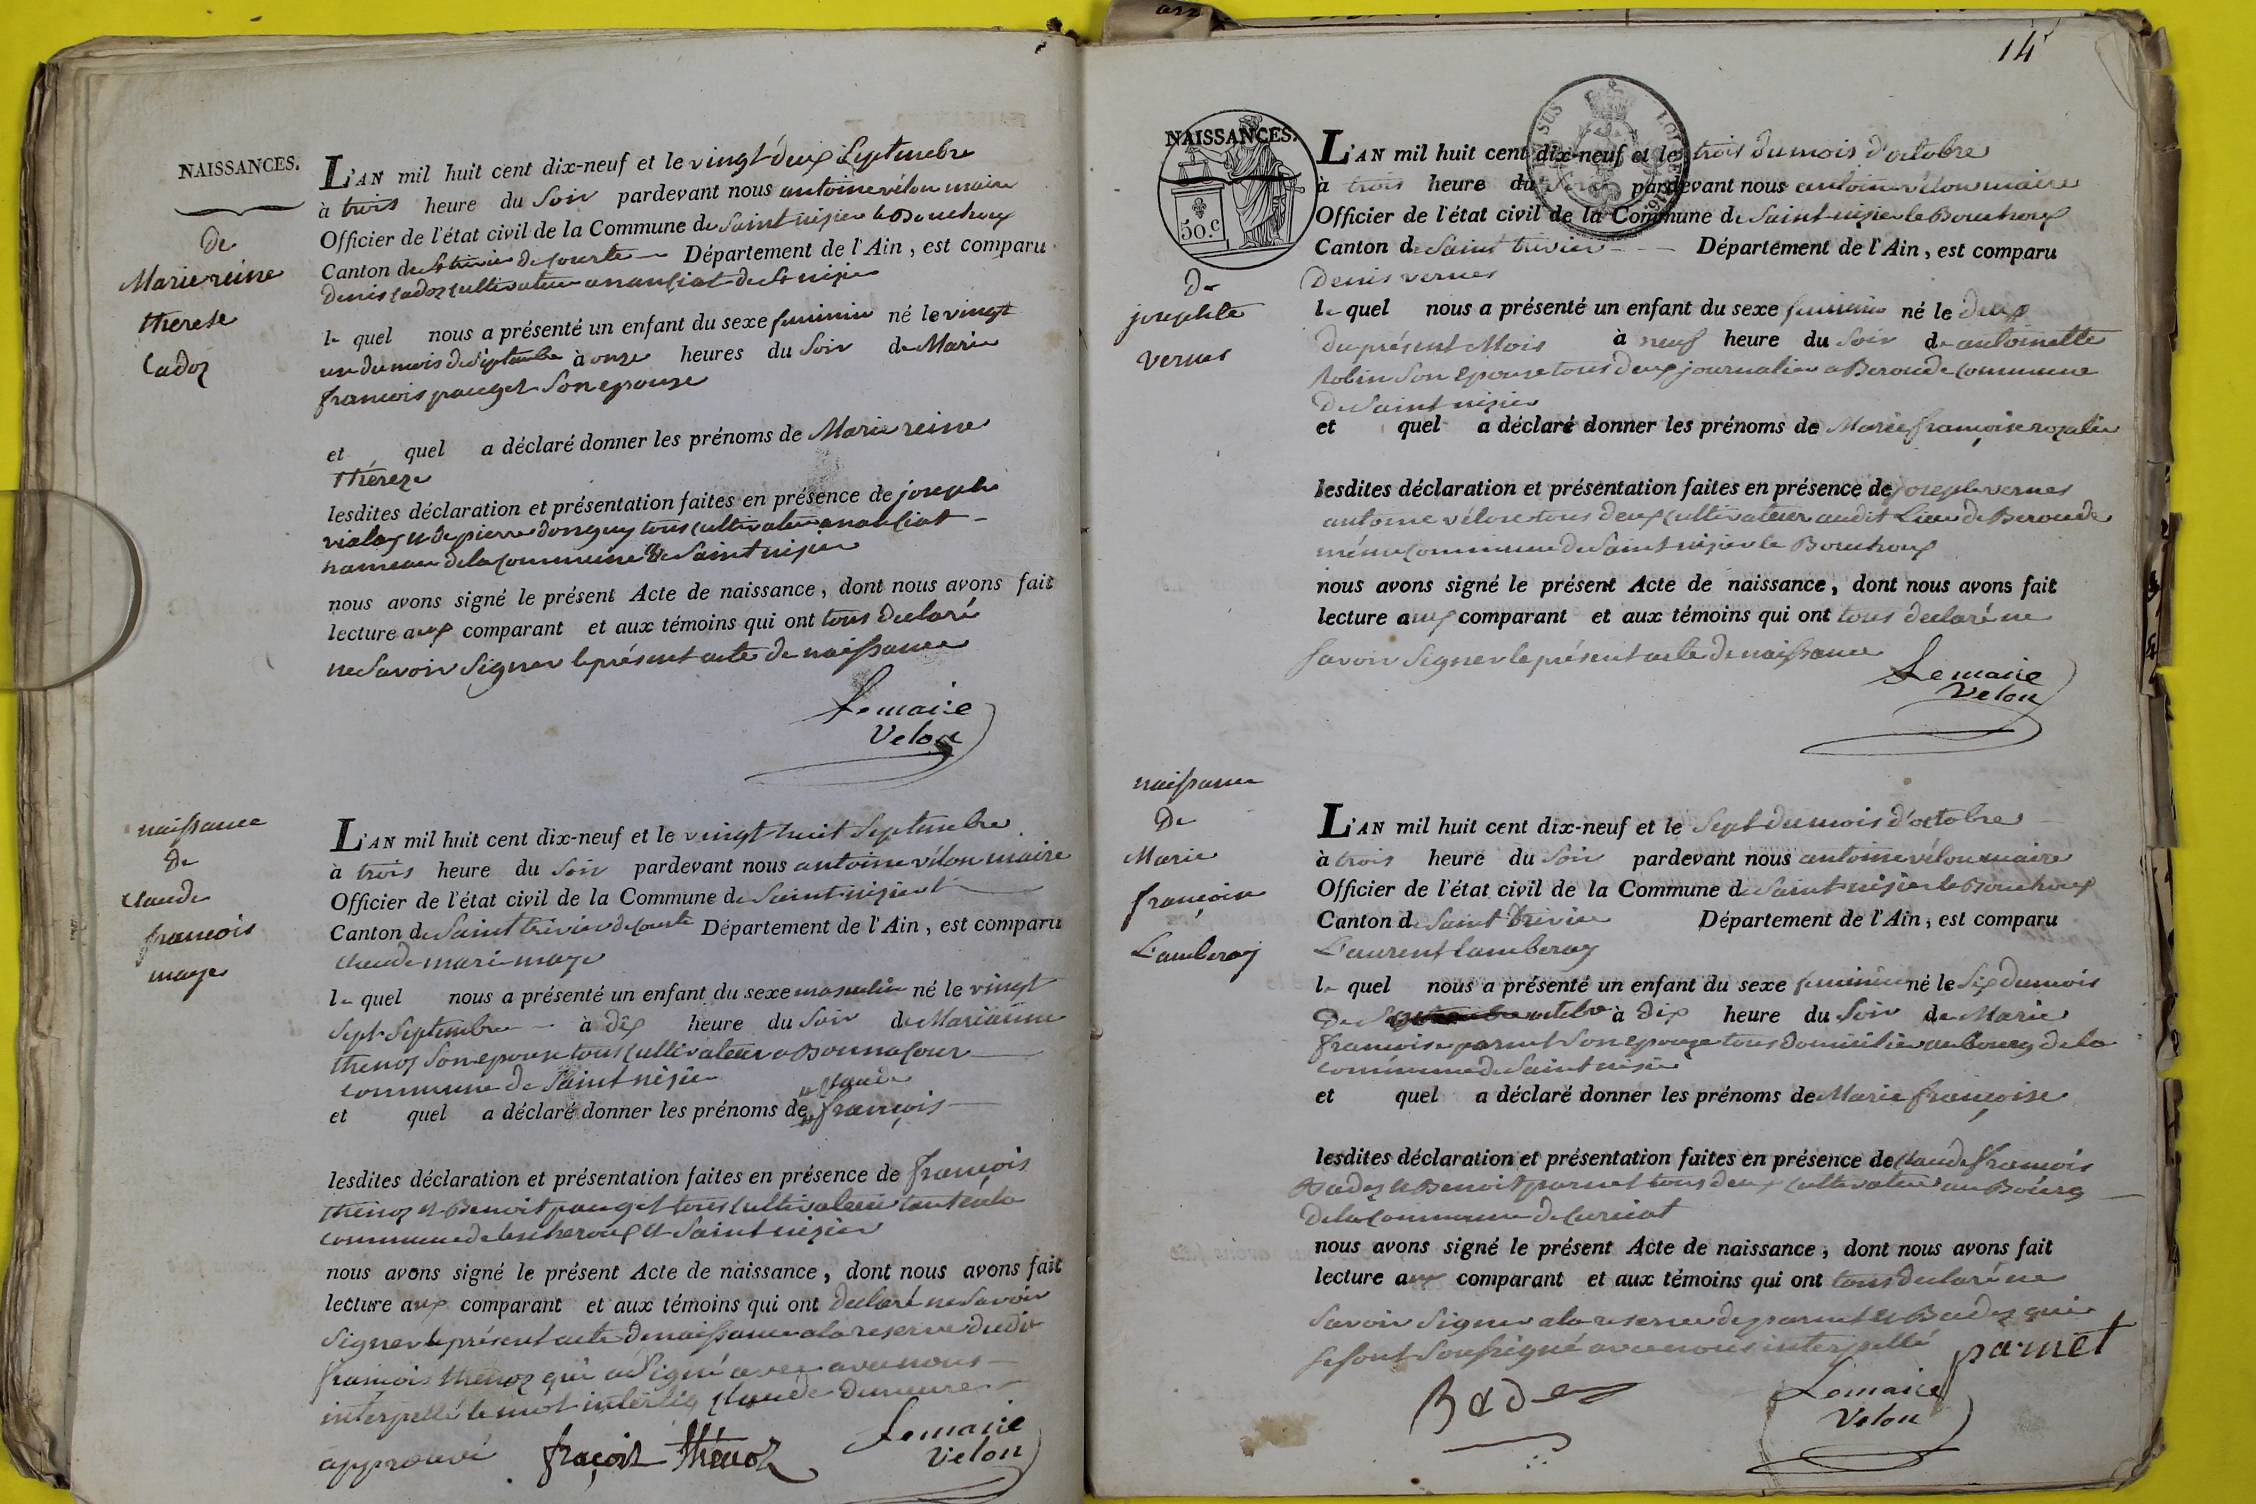 NAISSANCES.
de
Marie reine
therese
Cadoz
L'AN mil huit cent dix-neuf et le vingt deux Septembre
à trois heure du Soir pardevant nous antoine vélon maire
Officier de l'état civil de la Commune de Saint nizier le Bouchoux
Canton de St trivier de Courte Département de l'Ain, est comparu
Denis Cadoz cultivateur a nanciat de St nizier
le quel nous a présenté un enfant du sexe feminin né le vingt
un du mois de Septembre à onze heures du Soir de Marie
francois pauget Son epouse
et quel a déclaré donner les prénoms de Marie reine
théreze
lesdites déclaration et présentation faites en présence de joseph
vialay et de pierre donguy tous cultivateur a nanciat
hameau de la Commune de Saint nizier
nous avons signé le présent Acte de naissance, dont nous avons fait
lecture aux comparant et aux témoins qui ont tous declaré
ne Savoir Signer le présent acte de naissance
Le maire
Velon
naissance
de
Claude
francois
maye
L'AN mil huit cent dix-neuf et le vingt huit Septembre
à trois heure du Soir pardevant nous antoine vélon maire
Officier de l'état civil de la Commune de Saint nizier le
Canton de Saint trivier de Courte Département de l'Ain, est comparu
Claude mari maye
le quel nous a présenté un enfant du sexe masculin né le vingt
Sept Septembre à dix heure du Soir de Marianne
thenoz Son epouse tous cultivateur a Bonnacour
commune de Saint nizier
Claude
et quel a déclaré donner les prénoms de françois
lesdites déclaration et présentation faites en présence de françois
thenoz et Benoit pauget tous cultivateur tant a la
commune de lescheroux et Saint nizier
nous avons signé le présent Acte de naissance, dont nous avons fait
lecture aux comparant et aux témoins qui ont declaré ne Savoir
Signer le présent acte de naissance a la reserve du dit
francois thenoz qui a Signé avec avec nous
interpellé le mot interlig Claude demeure
approuvé
fraçois thénoz
Le maire
Velon
14
NAISSANCES.
50.c
de
josephte
vernes
L'AN mil huit cent dix-neuf et le trois du mois d'octobre
à trois heure du Soir pardevant nous antoine vélon maire
Officier de l'état civil de la Commune de Saint nizier le Bouchoux
Canton de Saint trivier Département de l'Ain, est comparu
Denis vernes
le quel nous a présenté un enfant du sexe feminin né le deux
du présent Mois à neuf heure du Soir de antoinette
Robin Son epouse tous deux journalier a Beroude commune
de Saint nizier
et quel a déclaré donner les prénoms de Marie françoise rozalie
lesdites déclaration et présentation faites en présence de joseph vernes
antoine vélon tous deux cultivateur audit Lieu de Beroude
même commune de Saint nizier le Bouchoux
nous avons signé le présent Acte de naissance, dont nous avons fait
lecture aux comparant et aux témoins qui ont tous declaré ne
Savoir Signer le présent acte de naissance
Le maire
Velon
naissance
de
Marie
françoise
Lamberoy
L'AN mil huit cent dix-neuf et le Sept du mois d'octobre
à trois heure du Soir pardevant nous antoine vélon maire
Officier de l'état civil de la Commune de Saint nizier le Bouchoux
Canton de Saint trivier Département de l'Ain, est comparu
Laurent lamberoy
le quel nous a présenté un enfant du sexe feminin né le Six du mois
de octobre à dix heure du Soir de Marie
francoise parnet Son epouze tous domicilie au bourg de la
commune de Saint nizier
et quel a déclaré donner les prénoms de Marie françoise
lesdites déclaration et présentation faites en présence de Claude francois
Badez et Benoit parnet tous deux cultivateur au Bourg
de la Commune de Curciat
nous avons signé le présent Acte de naissance, dont nous avons fait
lecture aux comparant et aux témoins qui ont tous declaré ne
Savoir Signer a la reserve de parnet et Badez qui
se sont Soussigné avec nous interpellé
parnet
Badez
Le maire
Velon